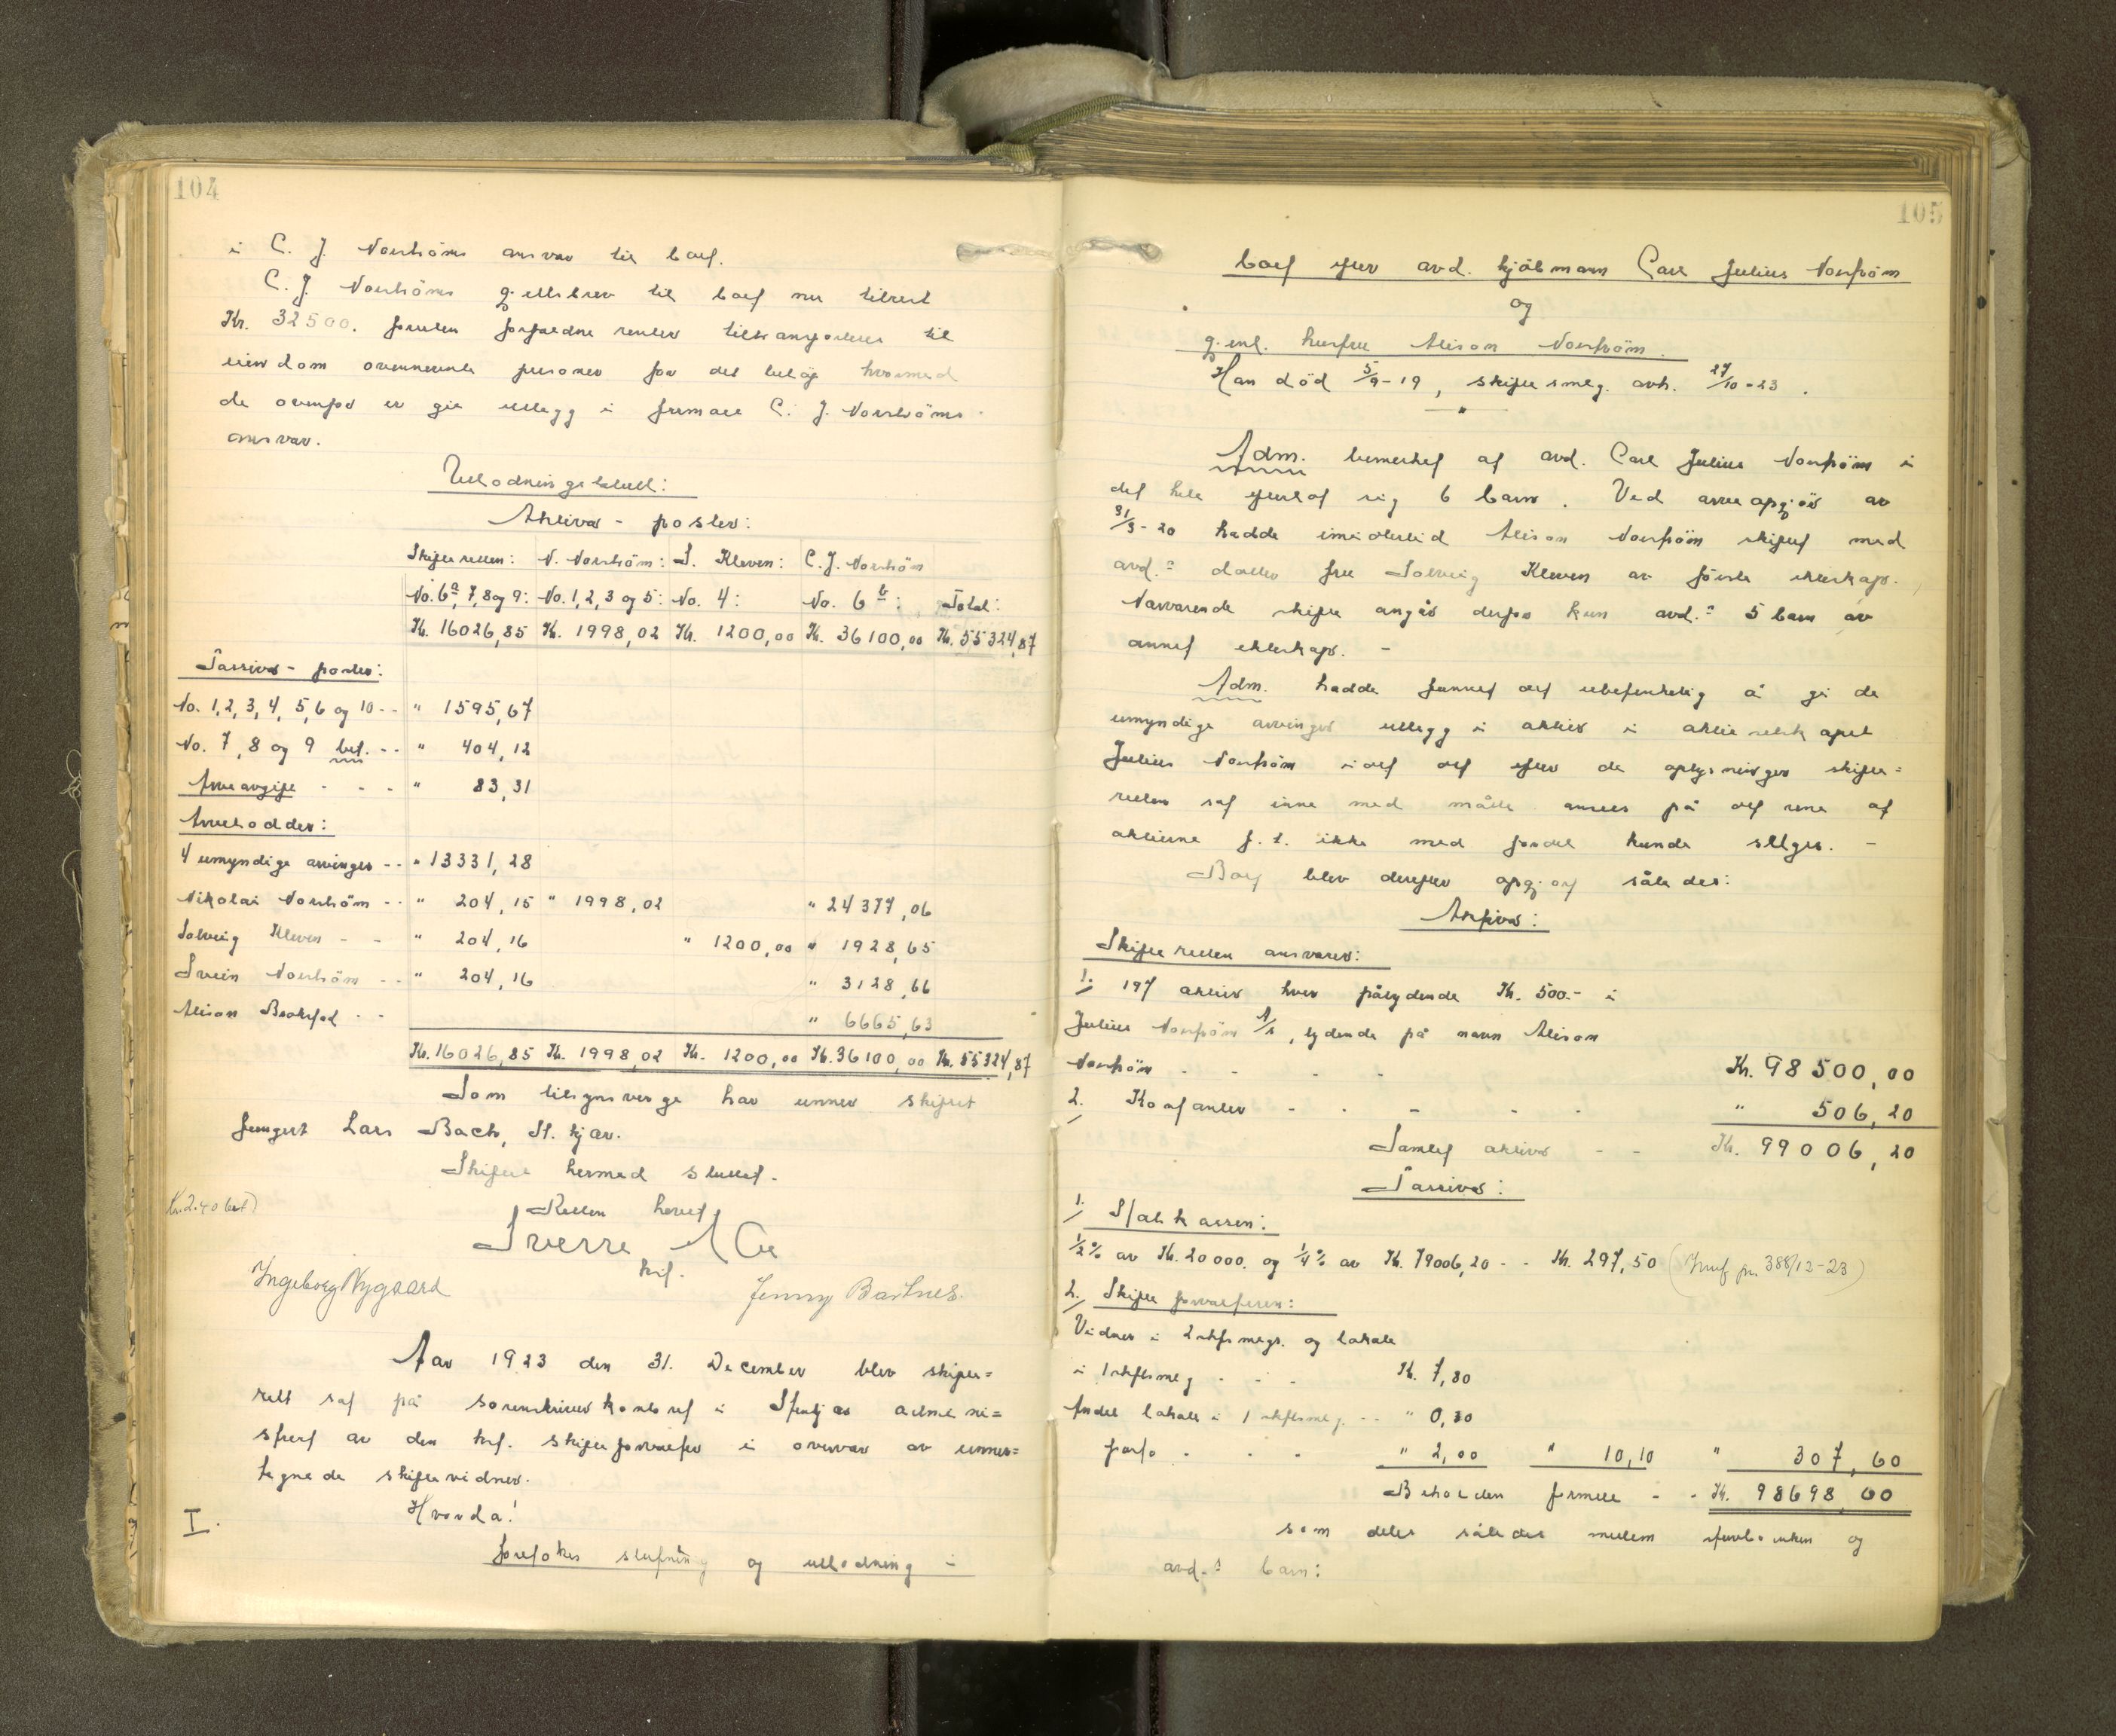 104
i C. J. Norström's ansvar til boet.
C. J. Norströms gjeldsbrev til boet nu tilrest
Kr. 32500. foruten forfaldne renter tiltransporteres til
eiendom ovennevnte personer for det beløp hvormed
de ovenfor er git utlegg i firmaet C. J. Norströms
ansvar.
Utlodningstabell:
Aktiva - poster:
Skifteretten: N. Norström: S. Kleven: C. J. Norström
No. 6a, 7, 8 og 9: No. 1, 2, 3 og 5: No. 4: No. 6b: Total:
Kr. 16026,85 Kr. 1998,02 Kr. 1200,00 Kr. 36100,00 Kr. 55324,87
Passiva - poster:
No. 1, 2, 3, 4, 5, 6 og 10 - - " 1595,67
No. 7, 8 og 9 bet. - - " 404,12
Arveavgift - - - " 83,31
Arvelodder:
4 umyndige arvinger - - " 13331,28
Nikolai Norström - - " 204,15 " 1998,02 " 24377,06
Solveig Kleven - - " 204,16 " 1200,00 " 1928,65
Svein Norström - - " 204,16 " 3128,66
Alison Brokfod - - " 6665,63
Kr. 16026,85 Kr. 1998,02 Kr. 1200,00 Kr. 36100,00 Kr. 55324,87
Som tilsynsverge har under skiftet
fungert Lars Bach, St. kjær.
Skiftet hermed sluttet.
Kr. 2.40 bet)
Retten hevet
Sverre
kst.
Ingeborg Nygaard Jenny Bartnes.
Aar 1923 den 31. December blev skifte=
rett sat på sorenskriverkontoret i Stenkjær admini=
stert av den kst. skifteforvalter i overvær av under=
tegnede skiftevidner.
Hvorda!
I.
foretokes slutning og utlodning i
105
boet efter avd. kjöbmann Carl Julius Norström
og
gjenl. hustru Alison Norström.
Han död 5/9-19, skiftesmlg. avh. 27/10-23.
"
Adm. bemerket at avd. Carl Julius Norström i
det hele efterlot sig 6 barn. Ved arveopgjör av
31/3-20 hadde imidlertid Alison Norström skiftet med
avd.s datter fru Solveig Kleven av förste ekteskap.
Nærværende skifte angår derfor kun avd.s 5 barn av
annet ekteskap. -
Adm. hadde funnet det ubetenkelig å gi de
umyndige arvinger utlegg i aktier i aktieselskapet
Julius Norström idet det efter de oplysninger skifte=
retten sat inne med måtte ansees på det rene at
aktierne f. t. ikke med fordel kunde selges. -
Boet blev derefter opgjort således:
Aktiva:
Skifteretten ansvarer:
1. 197 aktier hver pålydende Kr. 500.- i
Julius Norström A/s, lydende på navn Alison
Norström - - - - Kr. 98500,00
2. Kontanter - - - - - " 506,20
Samlet aktiva - - Kr. 99006,20
Passiva:
1. Statskassen:
1/2% av Kr. 20000. og 1/4% av Kr. 79006,20 - - Kr. 297,50 (Innf. jn. 388/12-23)
2. Skifteforvalteren:
Vidner i 2 skftsmlgr. og lokale
i 1 skftsmlg - - - Kr. 7,80
Andel lokale i 1 skftsmlg. - - " 0,30
porto - - - " 2,00 " 10,10 " 307,60
Beholden formue - - Kr. 98698,60
som deles således mellem efterl. enken og
avd.s barn: